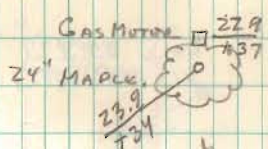 GAS METER 22.9
+37
24" MAPLE.
23.9
+34